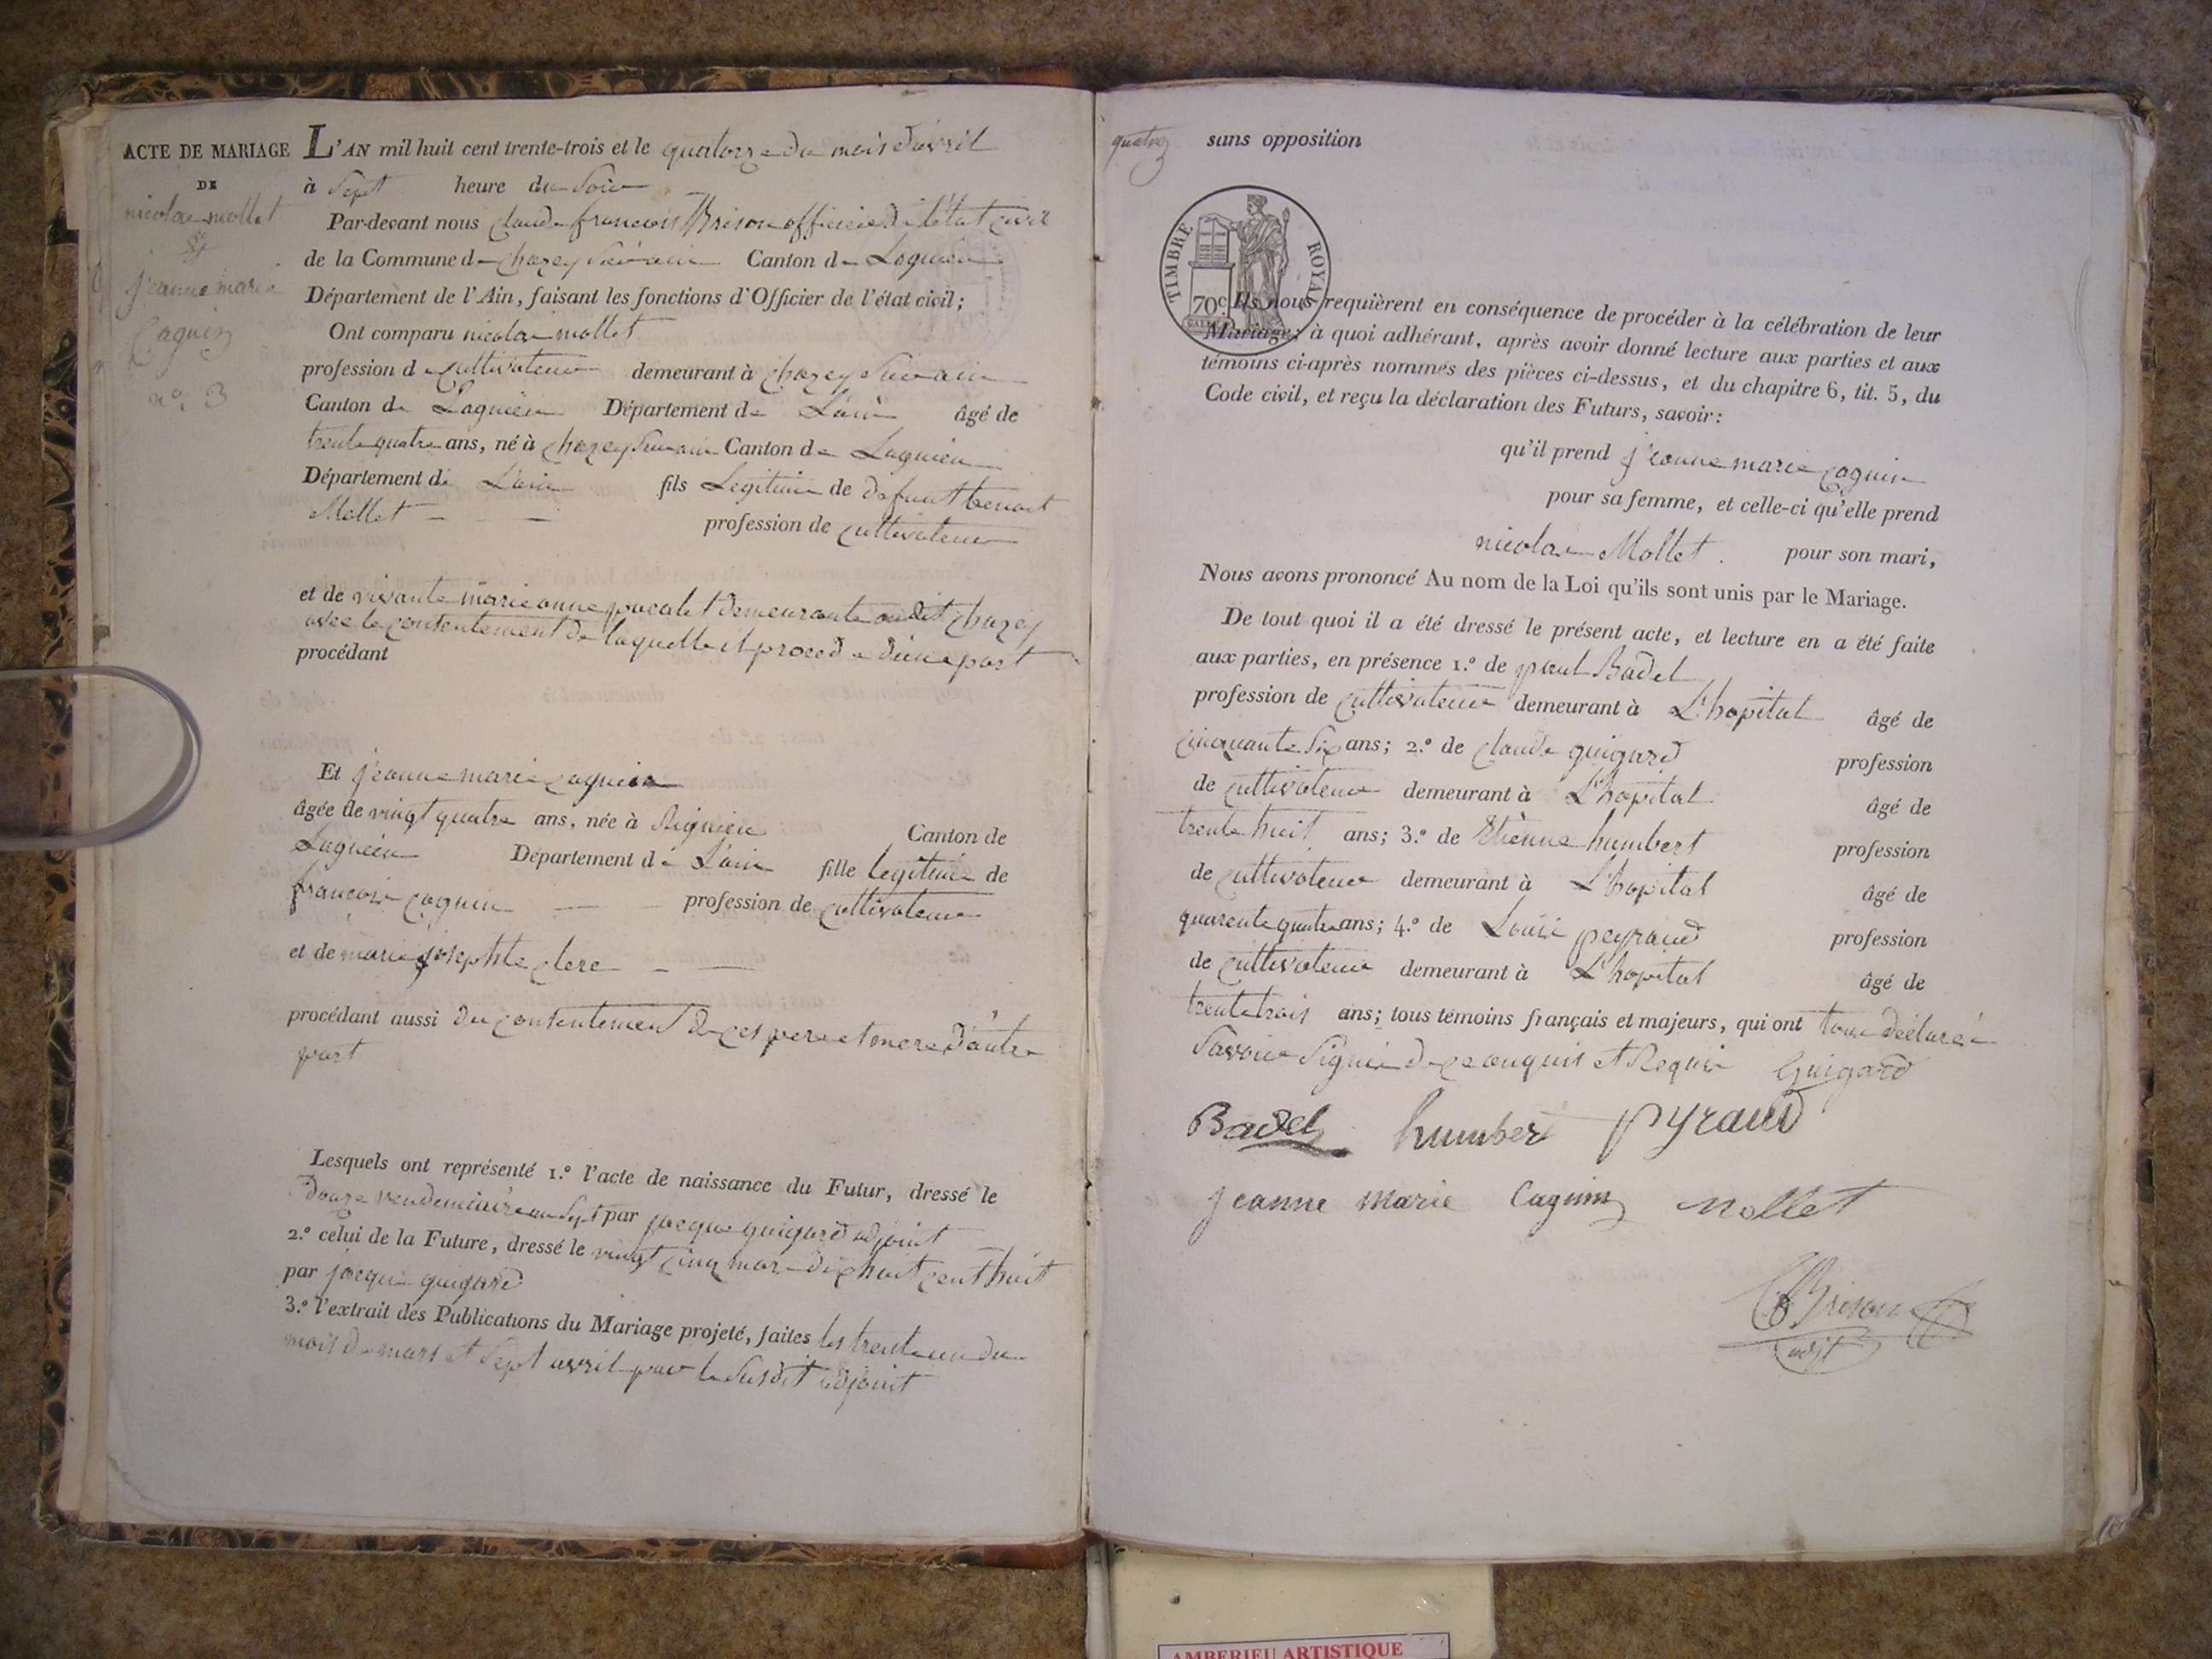 ACTE DE MARIAGE
DE
nicolas mollet
et
jeanne marie
Caguin
n.o 3
L'AN mil huit cent trente-trois et le quatorze du mois d'avril
à Sept heure du Soir
Par-devant nous claude francois Brison officier de l'état civil
de la Commune de chazey Canton de Lagnieu
Département de l'Ain, faisant les fonctions d'Officier de l'état civil;
Ont comparu nicolas mollet
profession de cultivateur demeurant à chazey
Canton de Lagnieu Département de L'ain âgé de
trente quatre ans, né à chazey Canton de Lagnieu
Département de L'ain fils Legitime de defunt benoit
Mollet profession de cultivateur
et de vivante marie anne demeurante au dit chazey
avec le consentement de laquelle il procede d'une part
procédant
Et jeanne marie caguin
âgée de vingt quatre ans, née à Rignieu Canton de
Lagnieu Département de L'ain fille legitime de
francois caguin profession de cultivateur
et de marie josephte clerc
procédant aussi du consentement de ces pere et mere d'autre
part
Lesquels ont représenté 1.º l'acte de naissance du Futur, dressé le
douze vendemiaire an Sept par jacque guigard adjoint
2.º celui de la Future, dressé le vingt cinq mars dix huit cent huit
par jacque guigard
3.º l'extrait des Publications du Mariage projeté, faites les trente un du
mois de mars et Sept avril par le Susdit adjoint
quatre
sans opposition
TIMBRE ROYAL
70c
Ils nous requièrent en conséquence de procéder à la célébration de leur
Mariage; à quoi adhérant, après avoir donné lecture aux parties et aux
témoins ci-après nommés des pièces ci-dessus, et du chapitre 6, tit. 5, du
Code civil, et reçu la déclaration des Futurs, savoir:
qu'il prend jeanne marie caguin
pour sa femme, et celle-ci qu'elle prend
nicolas Mollet. pour son mari,
Nous avons prononcé Au nom de la Loi qu'ils sont unis par le Mariage.
De tout quoi il a été dressé le présent acte, et lecture en a été faite
aux parties, en présence 1.º de paul Badel
profession de cultivateur demeurant à L'hopital âgé de
cinquante Six ans; 2.º de claude guigard profession
de cultivateur demeurant à L'hopital âgé de
trente huit ans; 3.º de Etienne humbert profession
de cultivateur demeurant à L'hopital âgé de
quarente quatre ans; 4.º de Louis peyraud profession
de cultivateur demeurant à L'hopital âgé de
trente trois ans; tous témoins français et majeurs, qui ont tous déclaré
Savoir Signer de ce enquis et Requis Guigard
Badel humbert pyraud
jeanne marie Caguin mollet
Brison
adjt
AMBERIEU ARTISTIQUE